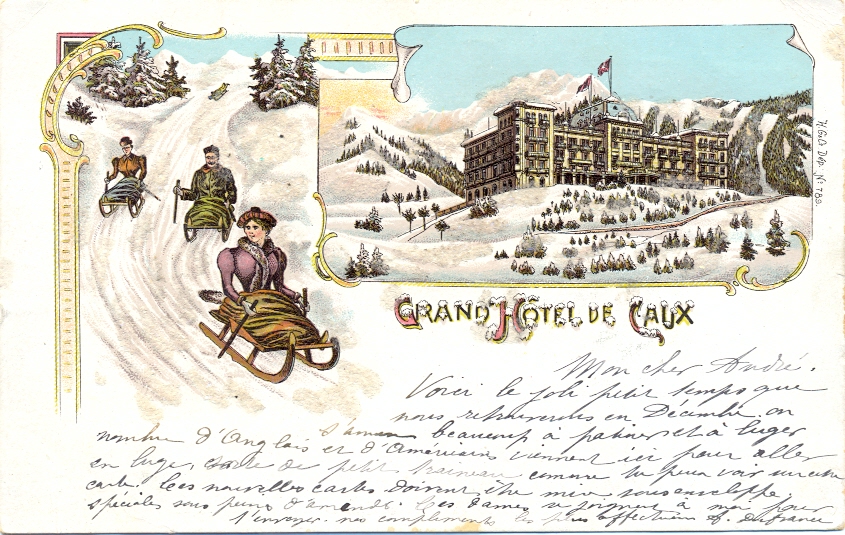 H.G.&G. Dép. No 783.
GRAND HÔTEL DE CAUX
Mon cher André.
Voici le joli petit temps que
nous retrouverons en Décembre. on
s'amuse beaucoup à patiner et à luger
nombre d'Anglais et d'Américains viennent ici pour aller
en luge, sorte de petit traineau comme tu peux voir sur cette
carte. Ces nouvelles cartes doivent être mises sous enveloppe
spéciales sous peine d'amende. Ces dames se joignent à moi pour
t'envoyer nos compliments les plus affectueux